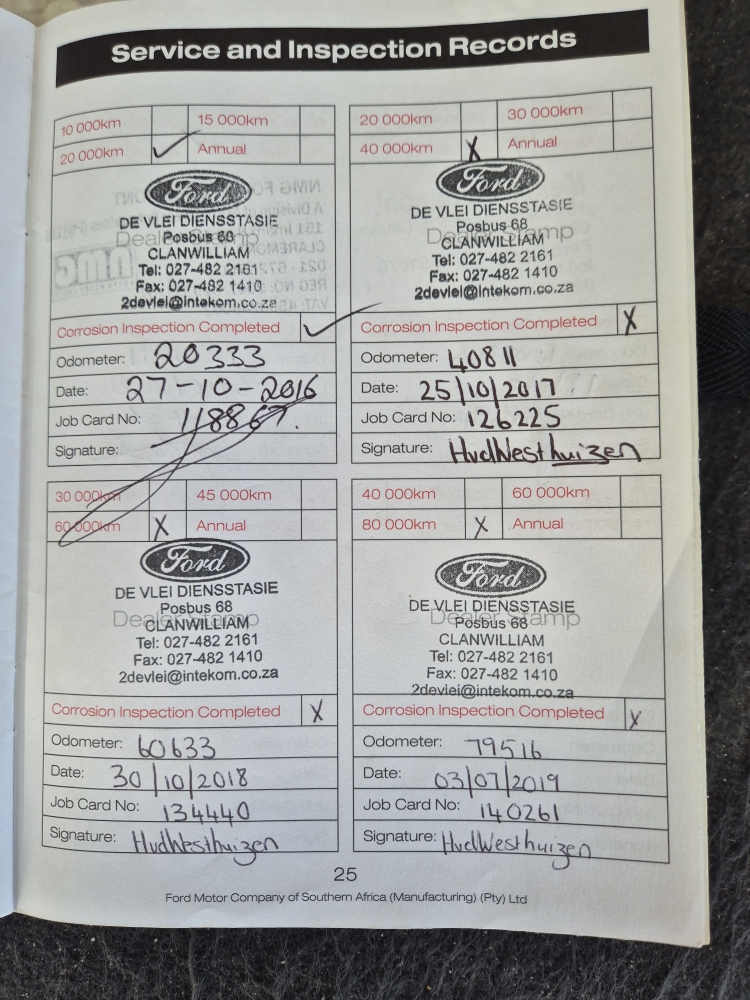 Service and Inspection Records
10 000km 15 000km
20 000km ✓ Annual
Ford
DE VLEI DIENSSTASIE
Dealer Stamp
Posbus 68
CLANWILLIAM
Tel: 027-482 2161
Fax: 027-482 1410
2devlei@intekom.co.za
Corrosion Inspection Completed ✓
Odometer: 20333
Date: 27-10-2016
Job Card No: 118867.
Signature:
20 000km 30 000km
40 000km X Annual
Ford
DE VLEI DIENSSTASIE
Posbus 68
Dealer Stamp
CLANWILLIAM
Tel: 027-482 2161
Fax: 027-482 1410
2devlei@intekom.co.za
Corrosion Inspection Completed X
Odometer: 40811
Date: 25/10/2017
Job Card No: 126225
Signature: HvdWesthuizen
30 000km 45 000km
60 000km X Annual
Ford
DE VLEI DIENSSTASIE
Posbus 68
Dealer Stamp
CLANWILLIAM
Tel: 027-482 2161
Fax: 027-482 1410
2devlei@intekom.co.za
Corrosion Inspection Completed X
Odometer: 60633
Date: 30/10/2018
Job Card No: 134440
Signature: HvdWesthuizen
40 000km 60 000km
80 000km X Annual
Ford
DE VLEI DIENSSTASIE
Dealer Stamp
Posbus 68
CLANWILLIAM
Tel: 027-482 2161
Fax: 027-482 1410
2devlei@intekom.co.za
Corrosion Inspection Completed X
Odometer: 79516
Date: 03/07/2019
Job Card No: 140261
Signature: HvdWesthuizen
25
Ford Motor Company of Southern Africa (Manufacturing) (Pty) Ltd